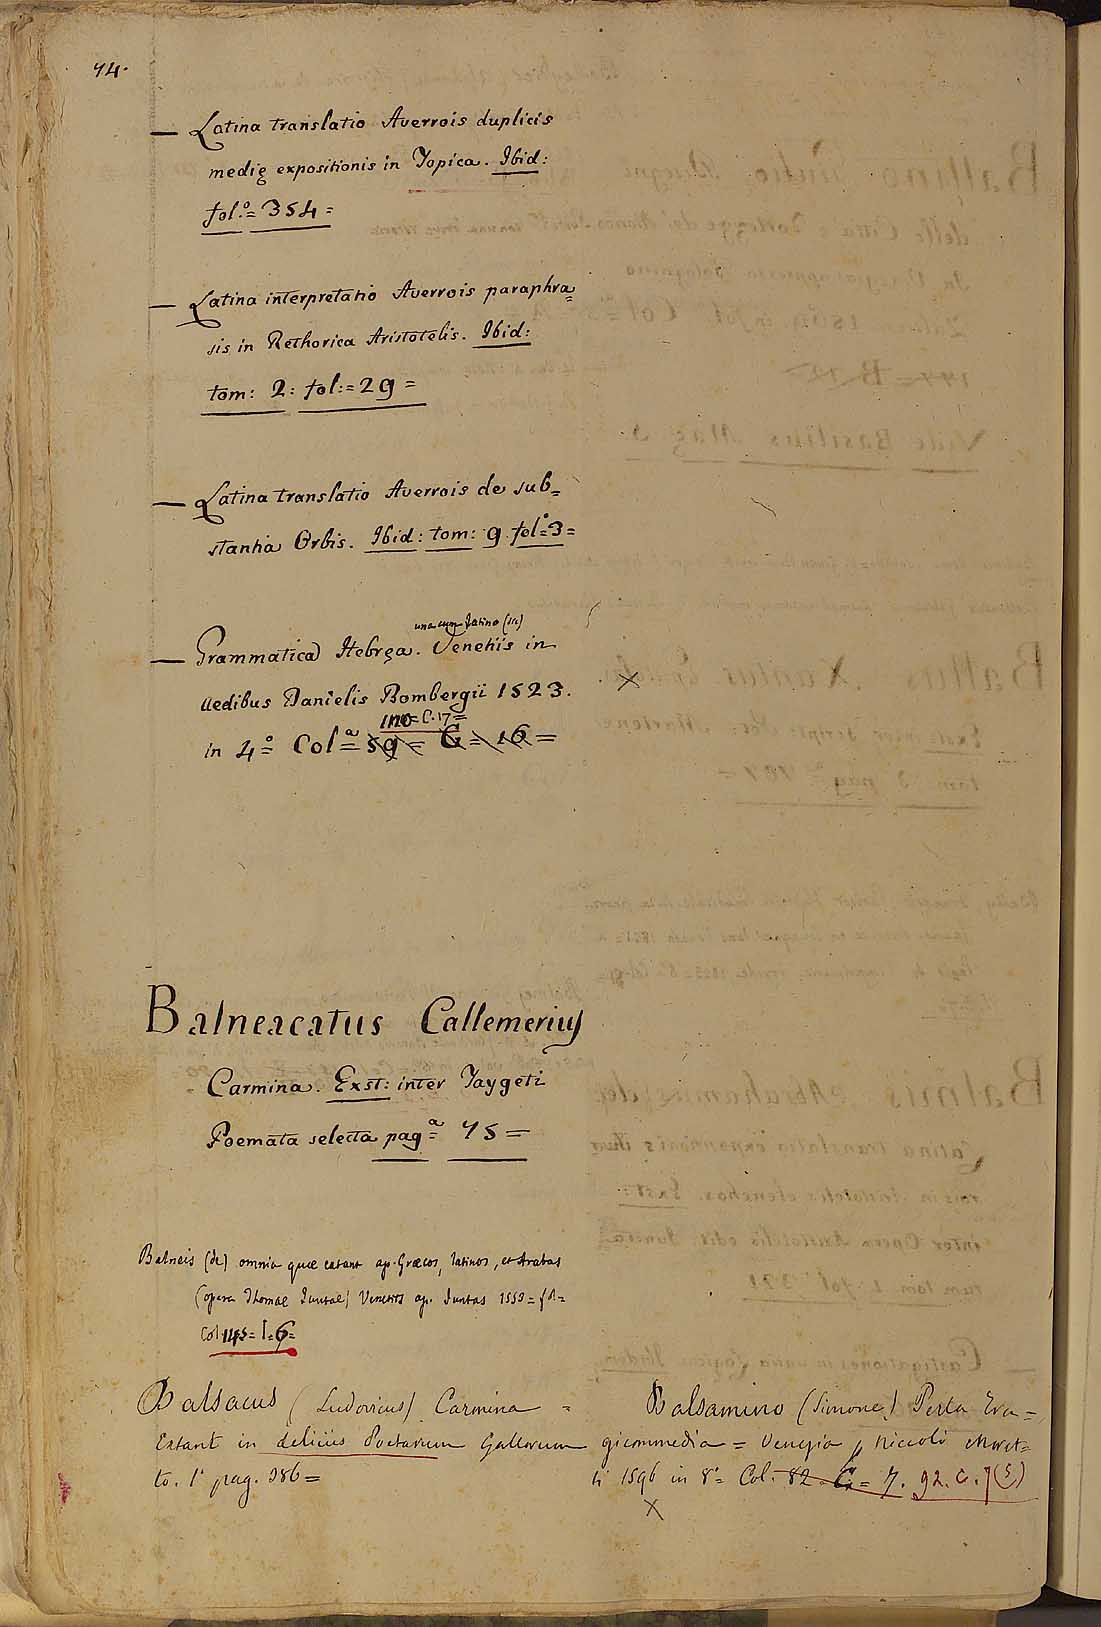 74.
— Latina translatio Averrois duplicis
medię expositionis in Topica. Ibid:
fol.º= 354=
— Latina interpretatio Averrois paraphra=
sis in Rethorica Aristotelis. Ibid:
tom: 2: fol:=29=
— Latina translatio Averrois de sub=
stantia Orbis. Ibid: tom: 9. folº=3=
una cum Latino (sic)
— Grammatica Hebręa. Venetiis in
Aedibus Danielis Bombergii 1523.
1110=C.17=
in 4º= Colª= 59= C= 16=
Balneacatus Callemerius
Carmina. Exst: inter Taygeti
Poemata selecta pagª= 75=
Balneis (de) omnia quæ extant ap. Græcos, Latinos, et Arabas
(opera Thomae Juntae) Venetiis ap. Juntas 1553= fol=
Col. 145= I.6=
Balsacus (Ludovicus) Carmina =
Extant in deliciis Poetarum Gallorum
to. 1º pag. 386=
Balsamino (Simone) Perla Tra=
gicommedia = Venezia p Niccolò Moret=
ti 1596 in 8º= Col. 82. C= 7. 92. C. 7(5)